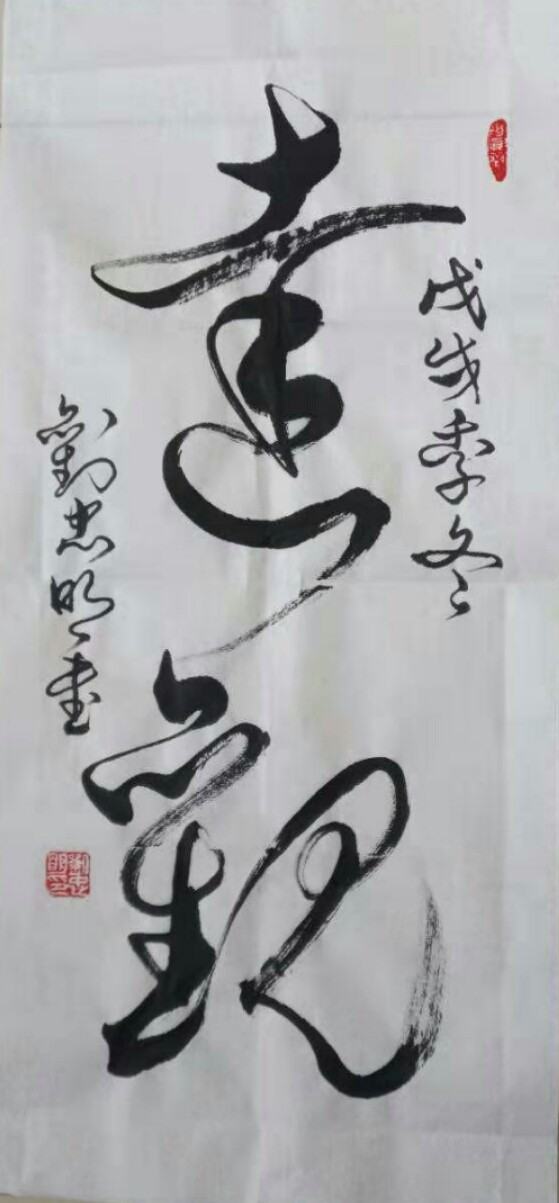 戊戌季冬
遠觀
劉忠明書
劉忠明印